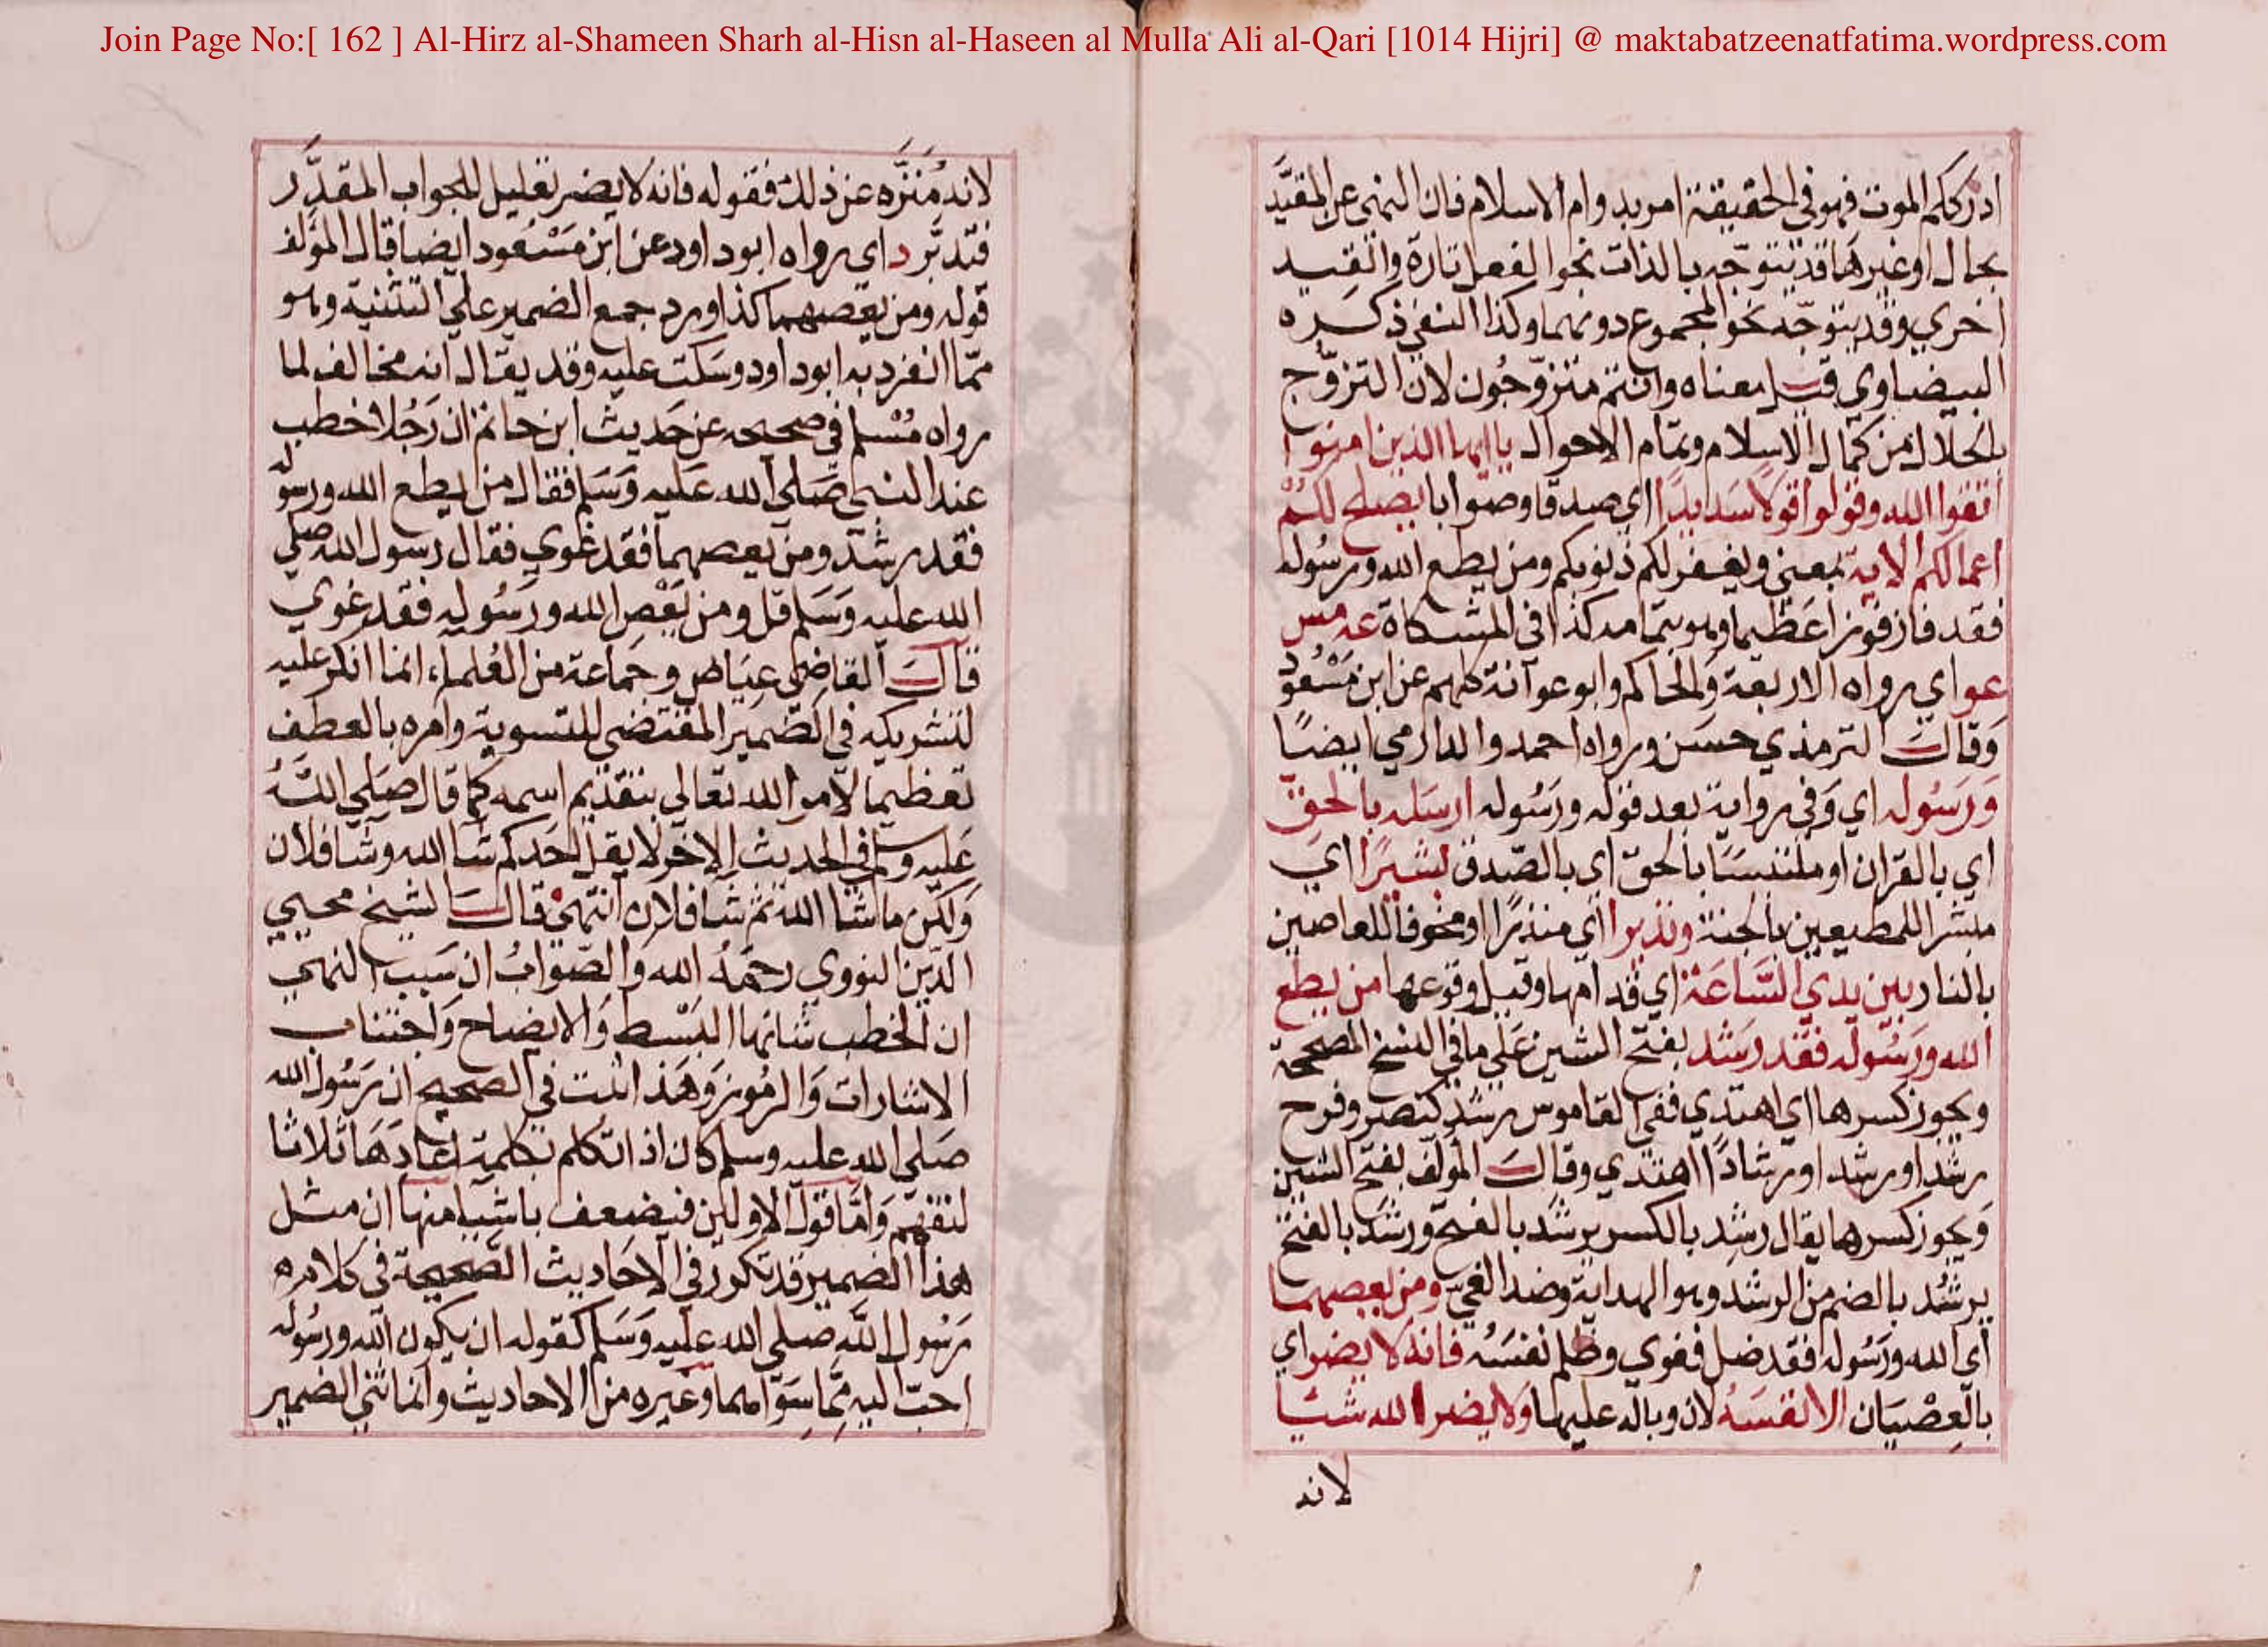 Join Page No:[ 162 ] Al-Hirz al-Shameen Sharh al-Hisn al-Haseen al Mulla Ali al-Qari [1014 Hijri] @ maktabatzeenatfatima.wordpress.com
ادرككم الموت فهو في الحقيقة امر بدوام الاسلام فان النهي عن المقيد
بحال او غيرها قد يتوجه بالذات نحو الفعل تارة والقيد
اخري وقد يتوجه نحو المجموع دونهما وكذا النفي ذكره
البيضاوي قيل معناه وانتم متزوجون لان التزوج
بالحلال من كمال الاسلام وتمام الاحوال ياايها الذين امنوا
اتقوا الله وقولوا قولا سديدا اي صدقا وصوابا يصلح لكم
اعمالكم الاية بمعني ويغفر لكم ذنوبكم ومن يطع الله ورسوله
فقد فاز فوزا عظيما وهو بتمامه كذا في المشكاة عه مس
عو اي رواه الاربعة والحاكم وابو عوانة كلهم عن ابن مسعود
وقال الترمذي حسن ورواه احمد والدارمي ايضا
ورسوله اي وفي رواية بعد قوله ورسوله ارسله بالحق
اي بالقران او ملتبسا بالحق اي بالصدق بشيرا اي
مبشرا للمطيعين بالجنة ونذيرا اي منذرا او مخوفا للعاصين
بالنار بين يدي الساعة اي قدامها وقبل وقوعها من يطع
الله ورسوله فقد رشد بفتح الشين علي ما في النسخ المصححة
ويجوز كسرها اي اهتدي ففي القاموس رشد كنصر وفرح
رشدا ورشدا ورشادا اهتدي وقال المؤلف بفتح الشين
ويجوز كسرها يقال رشد بالكسر يرشد بالفتح ورشد بالفتح
يرشد بالضم من الرشد وهو الهداية وضد الغي ومن يعصهما
اي الله ورسوله فقد ضل فغوي وظلم نفسه فانه لا يضر اي
بالعصيان الا نفسه لان وباله عليها ولا يضر الله شيئا
لانه
لانه منزه عن ذلك فقوله فانه لا يضر تعليل للجواب المقدر
فتدبر د اي رواه ابو داود عن ابن مسعود ايضا قال المؤلف
قوله ومن يعصهما كذا ورد جمع الضمير علي التثنية وهو
مما انفرد به ابو داود وسكت عليه وقد يقال انه مخالف لما
رواه مسلم في صحيحه عن حديث ابن حاتم ان رجلا خطب
عند النبي صلي الله عليه وسلم فقال من يطع الله ورسوله
فقد رشد ومن يعصهما فقد غوي فقال رسول الله صلي
الله عليه وسلم قل ومن يعص الله ورسوله فقد غوي
قال القاضي عياض وجماعة من العلماء انما انكر عليه
لتشريكه في الضمير المقتضي للتسوية وامره بالعطف
تعظيما لامر الله تعالي بتقديم اسمه كما قال صلي الله
عليه وسلم في الحديث الاخر لا يقل احدكم شا الله وشا فلان
ولكن ما شا الله ثم شا فلان انتهي قال الشيخ محيي
الدين النووي رحمه الله والصواب ان سبب النهي
ان الخطب شانها البسط والايضاح واجتناب
الاشارات والرموز وهذا اثبت في الصحيح ان رسول الله
صلي الله عليه وسلم كان اذا تكلم بكلمة اعادها ثلاثا
لتفهم واما قول الاولين فيضعف باشيا منها ان مثل
هذا الضمير قد تكرر في الاحاديث الصحيحة في كلامه
رسول الله صلي الله عليه وسلم كقوله ان يكون الله ورسوله
احب اليه مما سواهما وغيره من الاحاديث وانما ثني الضمير